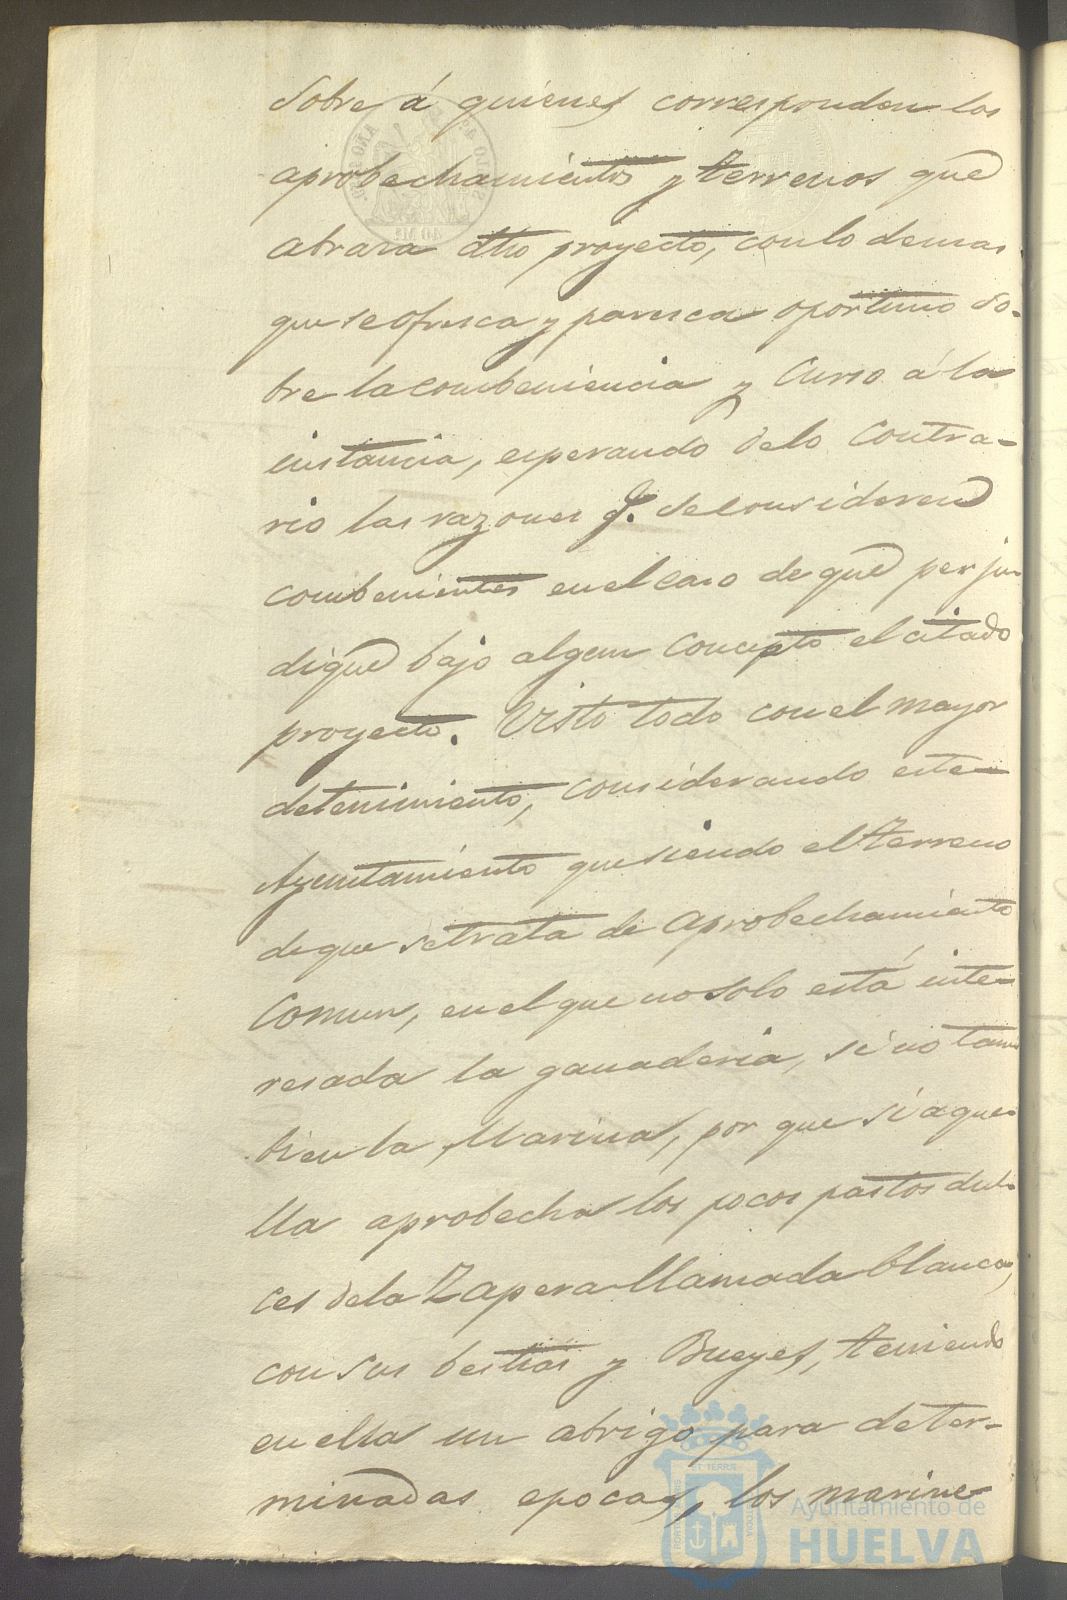 Sobre á quienes corresponden los
aprobechamientos y terrenos que
abrasa dho proyecto, con lo demas
que se ofresca y paresca oportuno So-
bre la combeniencia y Curso á la
instancia, esperando delo Contra-
rio las razones q. se consideren
combenientes en el caso de que perju-
dique bajo algun Concepto el citado
proyecto. Visto todo con el mayor
detenimiento, considerando este
Ayuntamiento que siendo el terreno
de que se trata de aprobechamiento
Comun, en el que no solo está inte-
resada la ganaderia, sino tam
bien la Marina, por que si aque-
lla aprobecha los pocos pastos dul-
ces dela Zapera llamada blanca,
con sus bestias y Bueyes, teniendo
en ella un abrigo para deter-
minadas epocas, los marine-
Ayuntamiento de
HUELVA